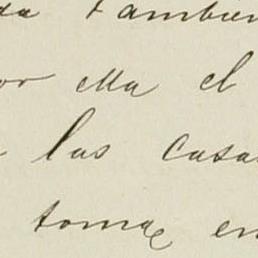 y tambien
ella el
las casa
toma en